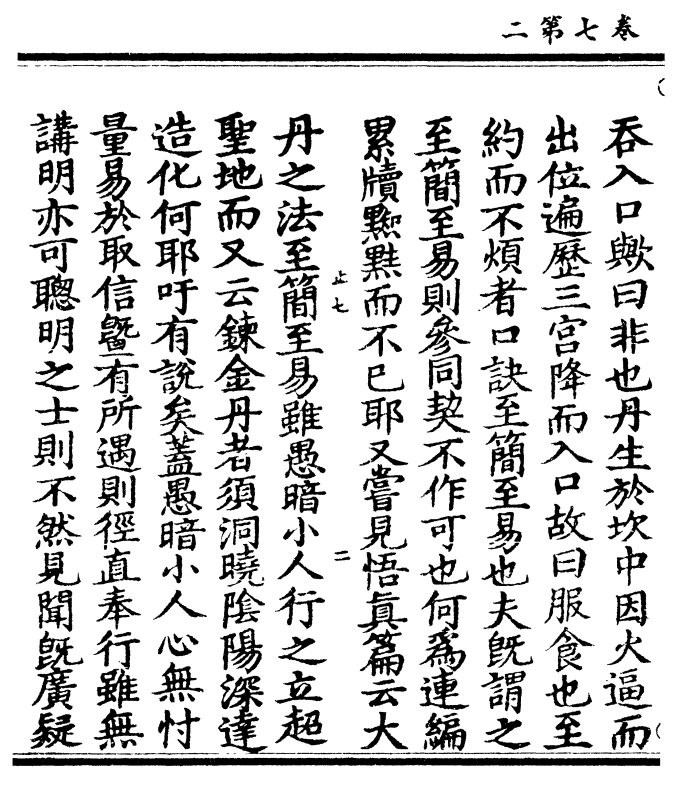 卷七第二
吞入口歟曰非也丹生於坎中因火逼而
出位遍歷三宮降而入口故曰服食也至
約而不煩者口訣至簡至易也夫旣謂之
至簡至易則參同契不作可也何爲連編
累牘㸃㸃而不已耶又嘗見悟眞篇云大
止七
二
丹之法至簡至易雖愚暗小人行之立超
聖地而又云鍊金丹者須洞曉陰陽深達
造化何耶吁有說矣蓋愚暗小人心無忖
量易於取信曁有所遇則徑直奉行雖無
講明亦可聰明之士則不然見聞旣廣疑